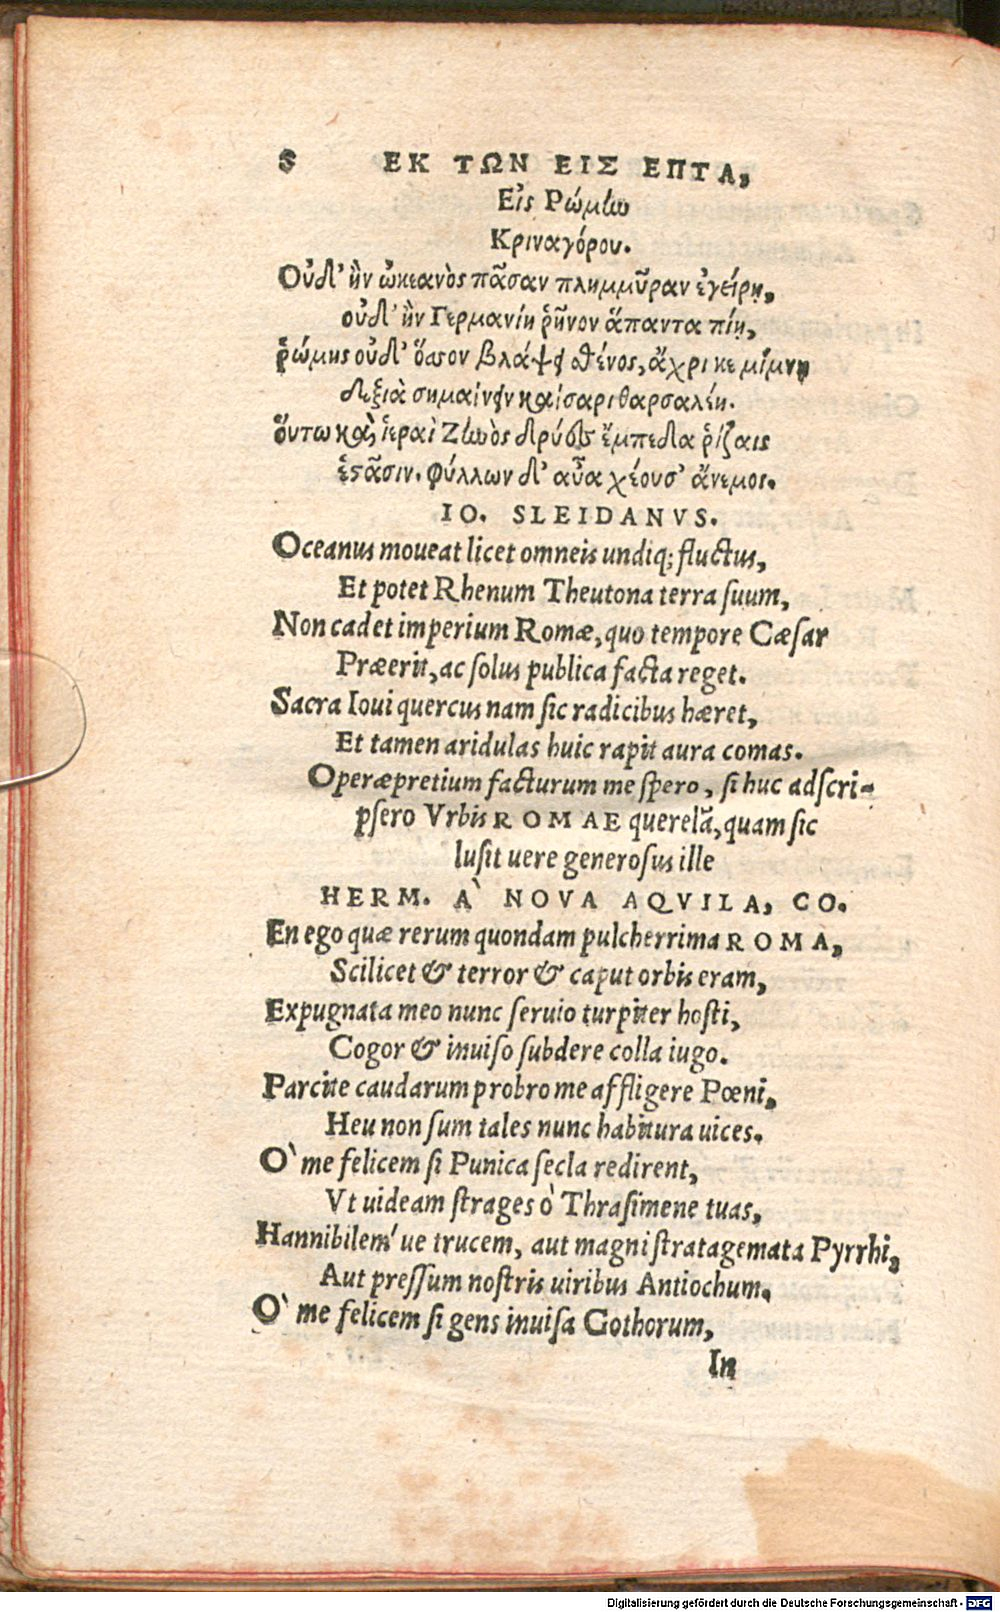 8 ΕΚ ΤΩΝ ΕΙΣ ΕΠΤΑ,
Εἰς Ρώμlω
Κριναγόρου.
Οὐδ' ἢν ὠκεανὸς πᾶσαν πλημμῦραν ἐγείρῃ,
οὐδ' ἢν Γερμανίη ῥῆνον ἅπαντα πίῃ,
ῥώμης οὐδ' ὅσσον βλάψει σθένος, ἄχρι κε μίμνῃ
δεξιὰ σημαίνειν καίσαρι θαρσαλέη.
ὅυτω καὶ ἱεραὶ Ζlωὸς δρύες ἔμπεδα ῥίζαις
ἑςᾶσιν. φύλλων δ' αὖα χέουσ' ἄνεμοι.
IO. SLEIDANVS.
Oceanus moueat licet omneis undiq; fluctus,
Et potet Rhenum Theutona terra suum,
Non cadet imperium Romæ, quo tempore Cæsar
Præerit, ac solus publica facta reget.
Sacra Ioui quercus nam sic radicibus hæret,
Et tamen aridulas huic rapit aura comas.
Operæpretium facturum me spero, si huc adscri-
psero Vrbis ROMAE querelā, quam sic
lusit uere generosus ille
HERM. A` NOVA AQVILA, CO.
En ego quæ rerum quondam pulcherrima ROMA,
Scilicet & terror & caput orbis eram,
Expugnata meo nunc seruio turpiter hosti,
Cogor & inuiso subdere colla iugo.
Parcite caudarum probro me affligere Pœni,
Heu non sum tales nunc habitura uices.
O` me felicem si Punica secla redirent,
Vt uideam strages ò Thrasimene tuas,
Hannibilem´ue trucem, aut magni stratagemata Pyrrhi,
Aut pressum nostris uiribus Antiochum.
O` me felicem si gens inuisa Gothorum,
In
Digitalisierung gefördert durch die Deutsche Forschungsgemeinschaft - DFG